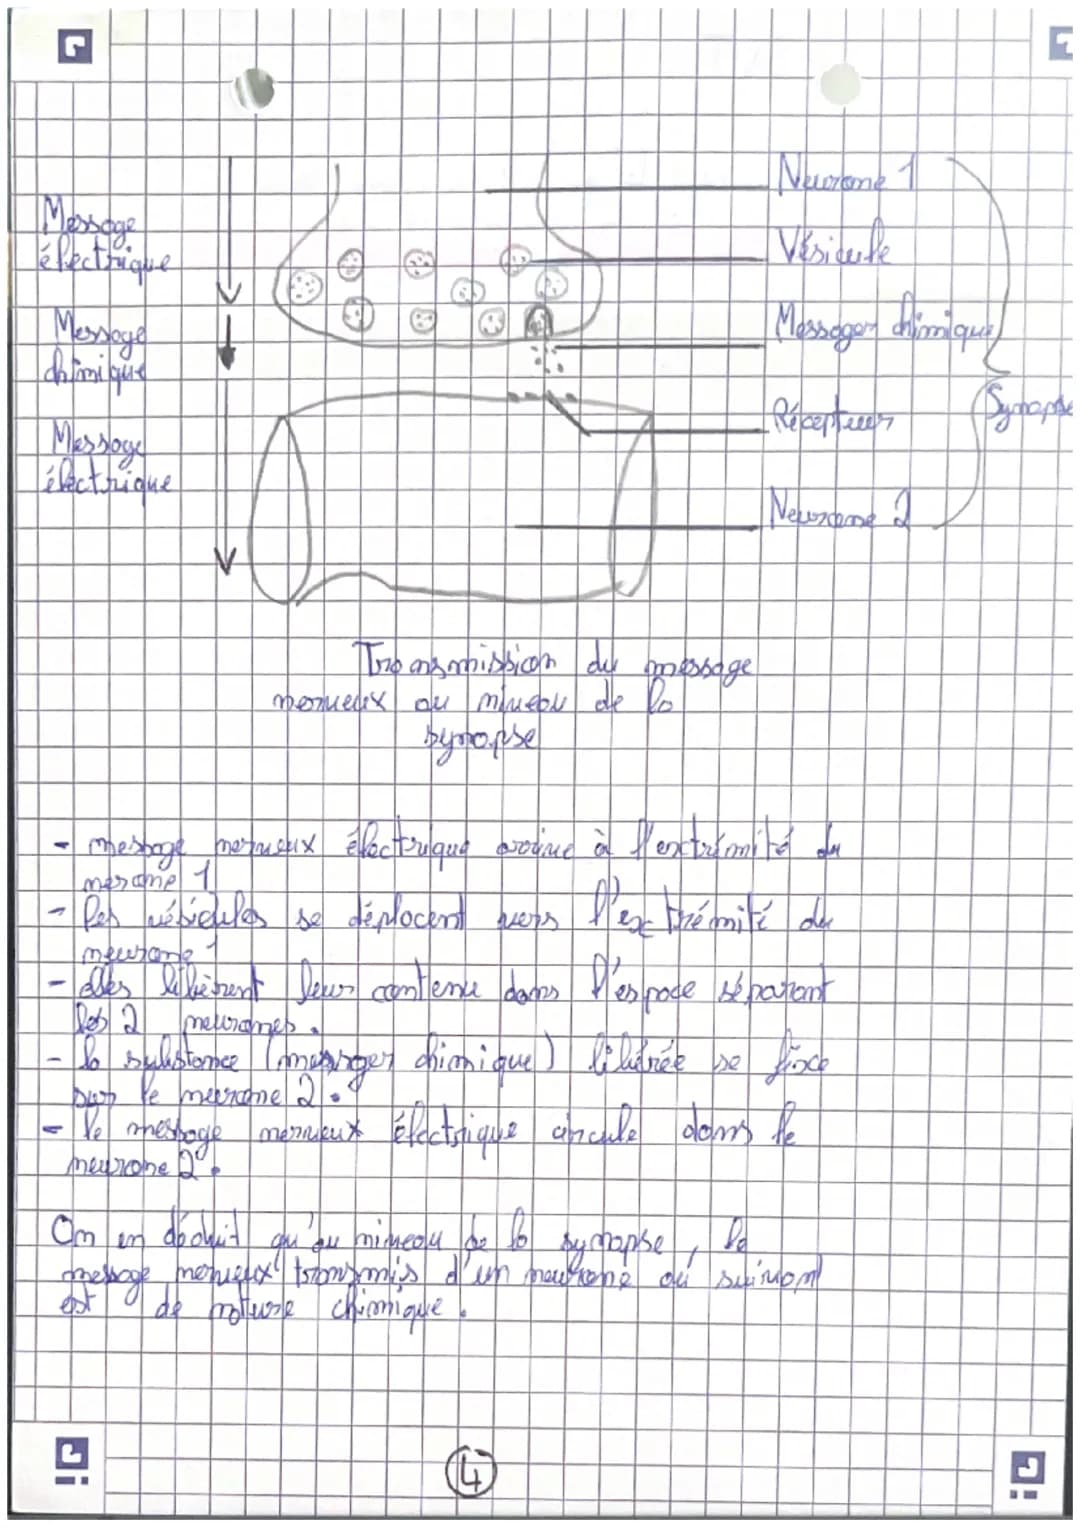 Message
électrique
Message
chimique
Message
électrique
Neurone 1
Vésicule
Messager chimique
Récepteurs
Synapse
Neurone 2
Transmission du message
nerveux au niveau de la
synapse
- message nerveux électrique arrive à l'extrémité du
nerone 1
- les vésicules se déplacent vers l'extrémité du
neurone 1
- elles libèrent leur contenu dans l'espace séparant
les 2 neurones.
- la substance (messager chimique) libérée se fixe
sur le neurone 2.
- le message nerveux électrique circule dans le
neurone 2.
On en déduit qu'au niveau de la synapse, le
message nerveux transmis d'un neurone au suivant
est de nature chimique.
4